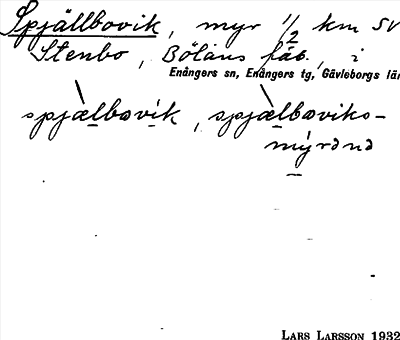 Spjällbovik, myr 1/2 km SV
Stenbo, Bölans fäb., i
Enångers sn, Enångers tg, Gävleborgs län
spjæ̀lbovík, spjæ̀lboviks-
mýrənə
LARS LARSSON 1932